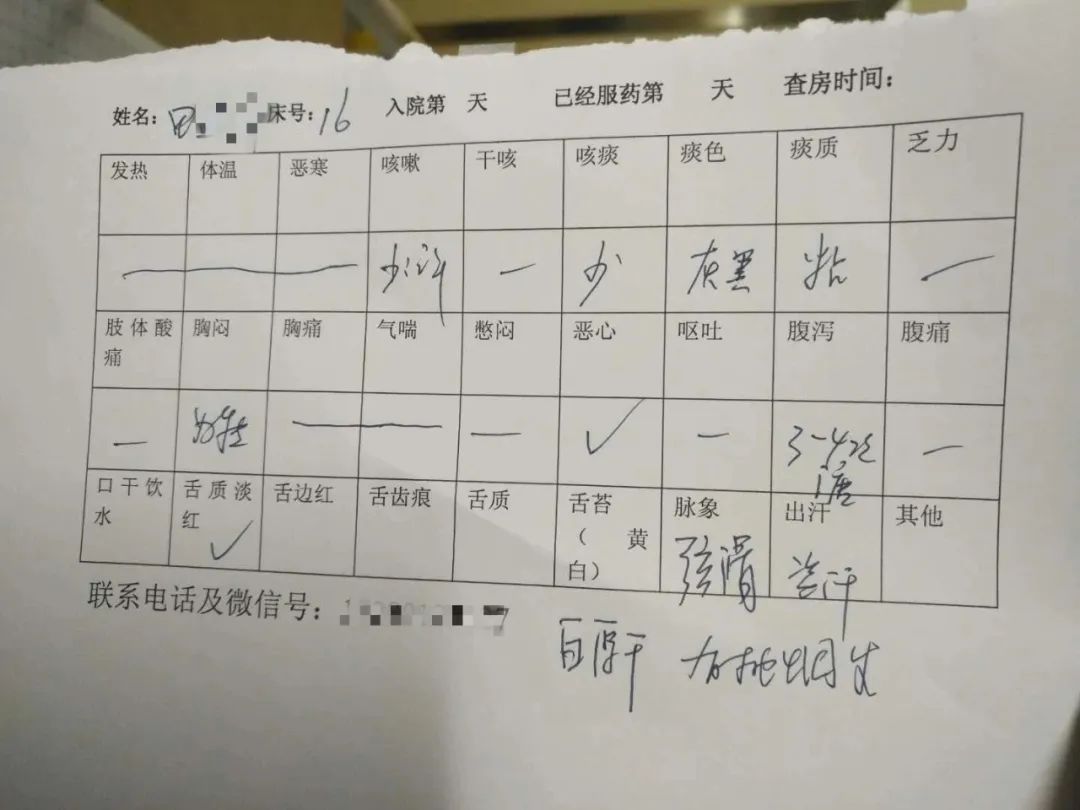 姓名： 田 床号：16 入院第 天 已经服药第 天 查房时间：
发热 体温 恶寒 咳嗽 干咳 咳痰 痰色 痰质 乏力
— 少许 — 少 灰黑 粘 —
肢体酸痛 胸闷 胸痛 气喘 憋闷 恶心 呕吐 腹泻 腹痛
— — — ✓ — 3-4次 溏 —
口干饮水 舌质淡红 ✓ 舌边红 舌齿痕 舌质 舌苔（黄白） 脉象 弦滑 出汗 其他
联系电话及微信号： 7
白厚干